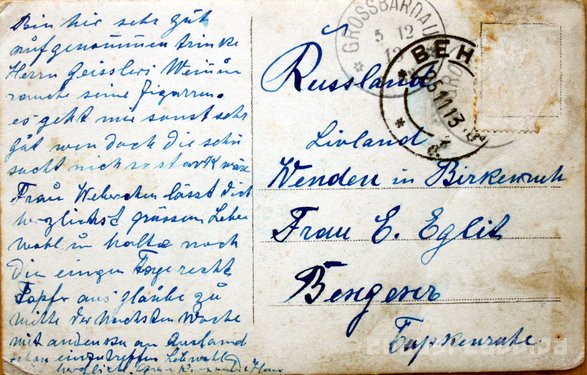 Bin hir sehr gut
aufgenommen trinke
Herrn Geisslers Wein u
rauche seine Zigarren.
es geht mir sonst sehr
gut wen doch die sehn
sucht nich so stark wäre
Frau lässt dich
herzlichst grüssen Lebe
wohl u halte noch
Die einigen Tage recht
Tapfer aus glaube zu
mitte der nachsten Woche
mit an Russland
schon einzutreffen Lebwohl
GROSSBARDAU
5 12
BEH
Russland
Livland
Wenden in Birkenruh
Frau E. Eglit